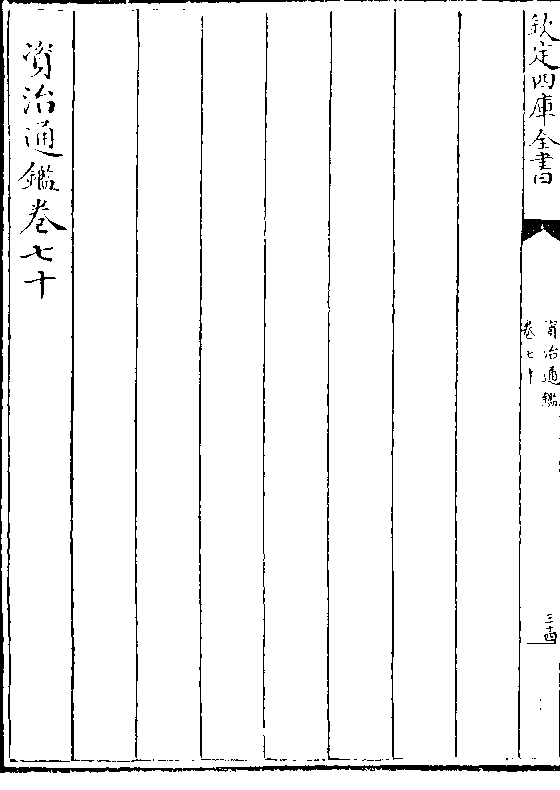 欽定四庫全書
資治通鑑
卷七十
三十四
資治通鑑卷七十